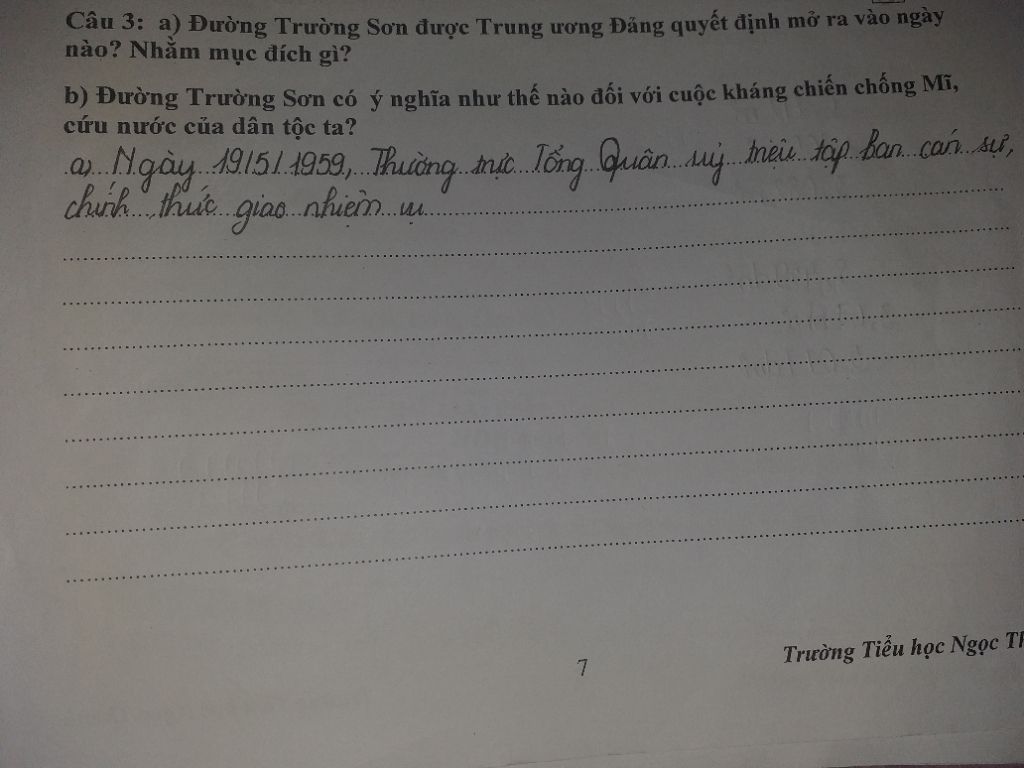 Câu 3: a) Đường Trường Sơn được Trung ương Đảng quyết định mở ra vào ngày
nào? Nhằm mục đích gì?
b) Đường Trường Sơn có ý nghĩa như thế nào đối với cuộc kháng chiến chống Mĩ,
cứu nước của dân tộc ta?
a) Ngày 19/5/1959, Thường trực Tổng Quân uỷ triệu tập Ban cán sự,
chính thức giao nhiệm vụ
7
Trường Tiểu học Ngọc